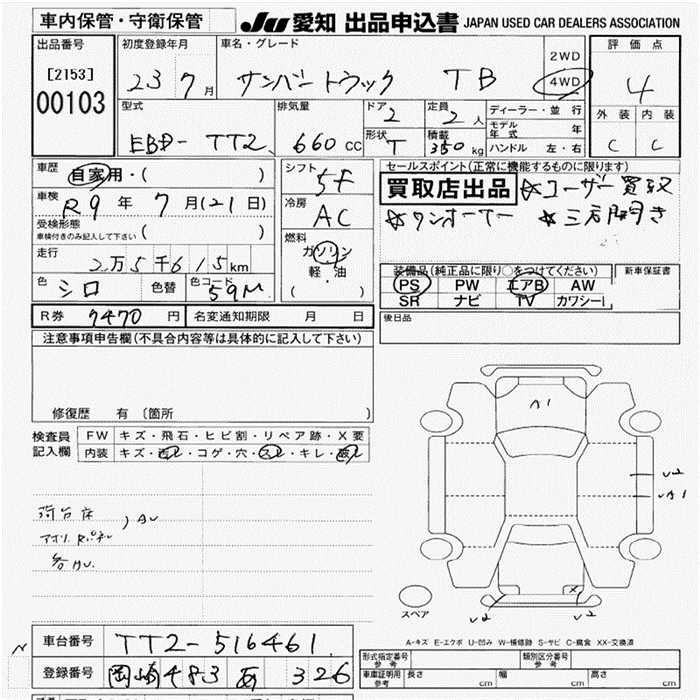 車内保管・守衛保管
JU 愛知 出品申込書 JAPAN USED CAR DEALERS ASSOCIATION
出品番号
[2153]
00103
初度登録年月
23 7月
車名・グレード
サンバートラック TB
2WD
4WD
評価点
4
外装 内装
C C
型式
EBD-TT2
排気量
660cc
ドア 2
形状 T
定員 2人
積載 350kg
ディーラー・並行
モデル年式 年
ハンドル 左・右
車歴
自家用・( )
車検
R9年 7月(21日)
受検形態
車検付きのみ記入して下さい ( )
走行
2万5千615km
色 シロ 色替 色コード 59M
シフト
5F
冷房
AC
燃料
ガソリン
軽・油
( )
セールスポイント(正常に機能するものに限ります)
買取店出品 ☆ユーザー買取
☆ワンオーナー ☆三方開き
装備品(純正品に限り○をつけてください) 新車保証書
PS PW エアB AW
SR ナビ TV カワシート
R券 7470円 名変通知期限 月 日
後日品
注意事項申告欄(不具合内容等は具体的に記入して下さい)
修復歴 有〔箇所 〕
検査員記入欄
FW キズ・飛石・ヒビ割・リペア跡・X要
内装 キズ・汚レ・コゲ・穴・スレ・キレ・破レ
荷台床 , AU
アオリ
各AU.
A1
U2
UA1
X
U2 U2
スペア
A-キズ E-エクボ U-凹み W-補修跡 S-サビ C-腐食 XX-交換済
N
車台番号 TT2-516461
登録番号 岡崎483 あ 326
形式指定番号 参考
類別区分番号 参考
車庫証明用 参考 長さ cm 幅 cm 高さ cm